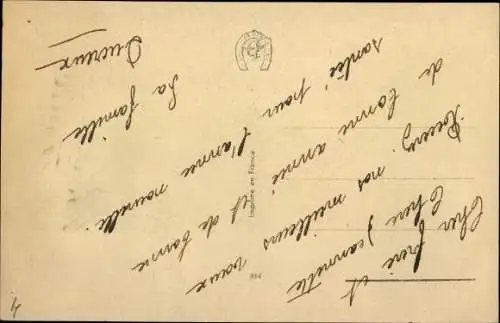 Cher frere et
Chere Jeannette
Recevez nos meilleurs vœux
de bonne année et de bonne
santée pour l'année nouvelle.
La famille
Ducreux
Imprimé en France